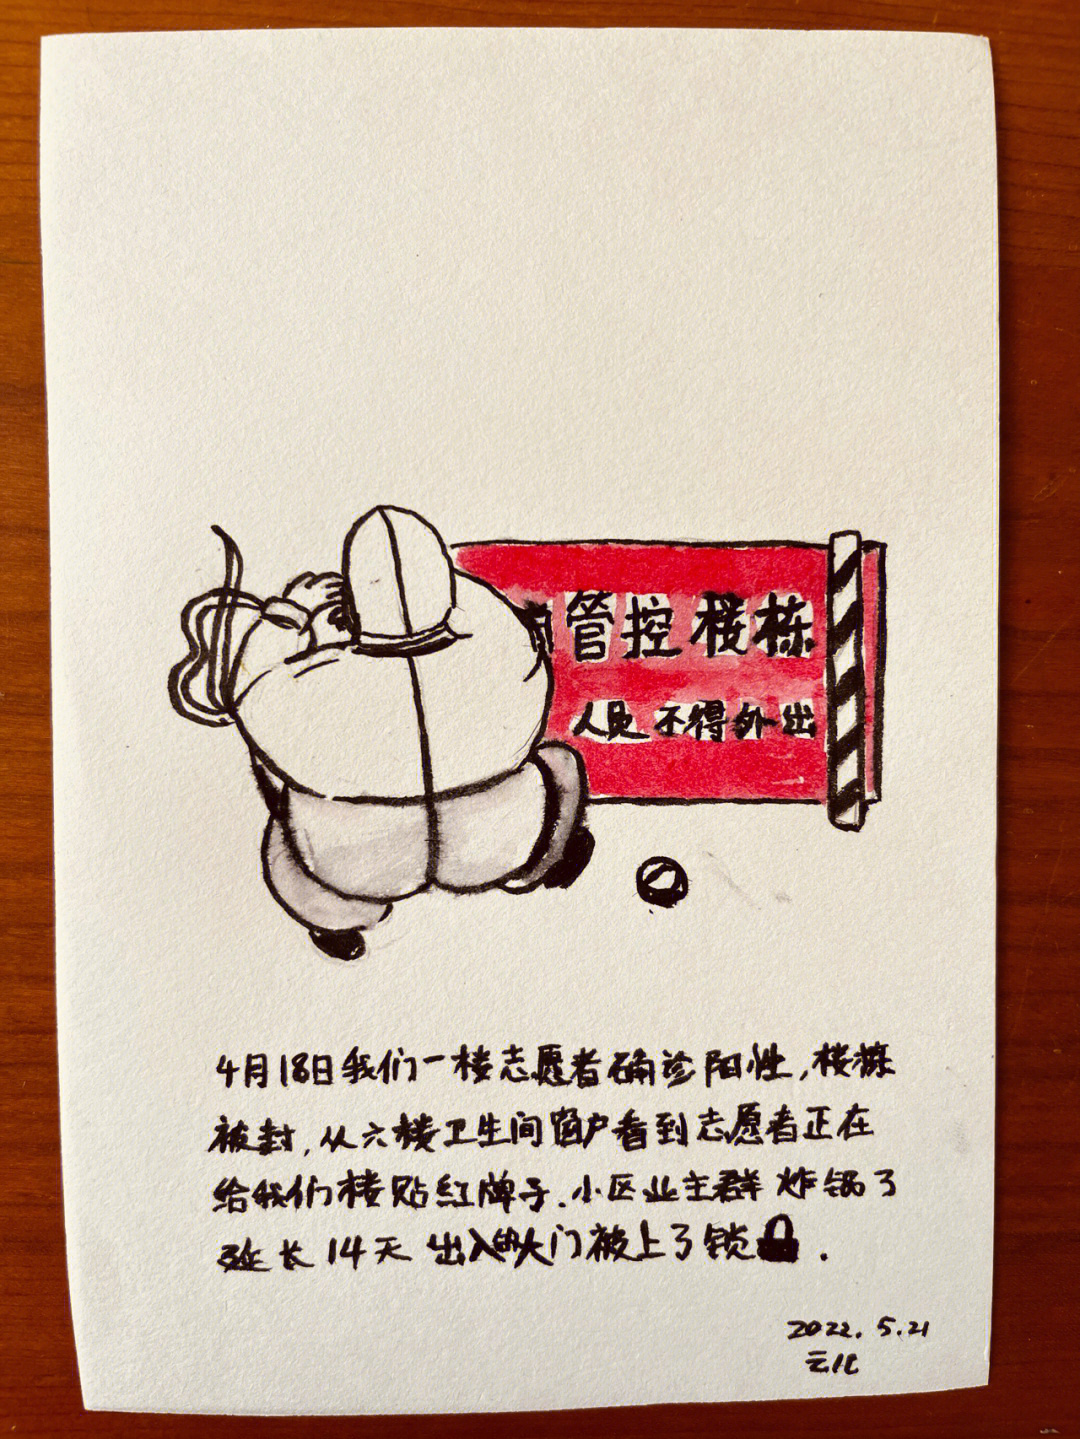 管控楼栋
人员不得外出
4月18日我们一楼志愿者确诊阳性,楼栋
被封,从六楼卫生间窗户看到志愿者正在
给我们楼贴红牌子.小区业主群炸锅了
延长14天 出入的大门被上了锁.
2022.5.21